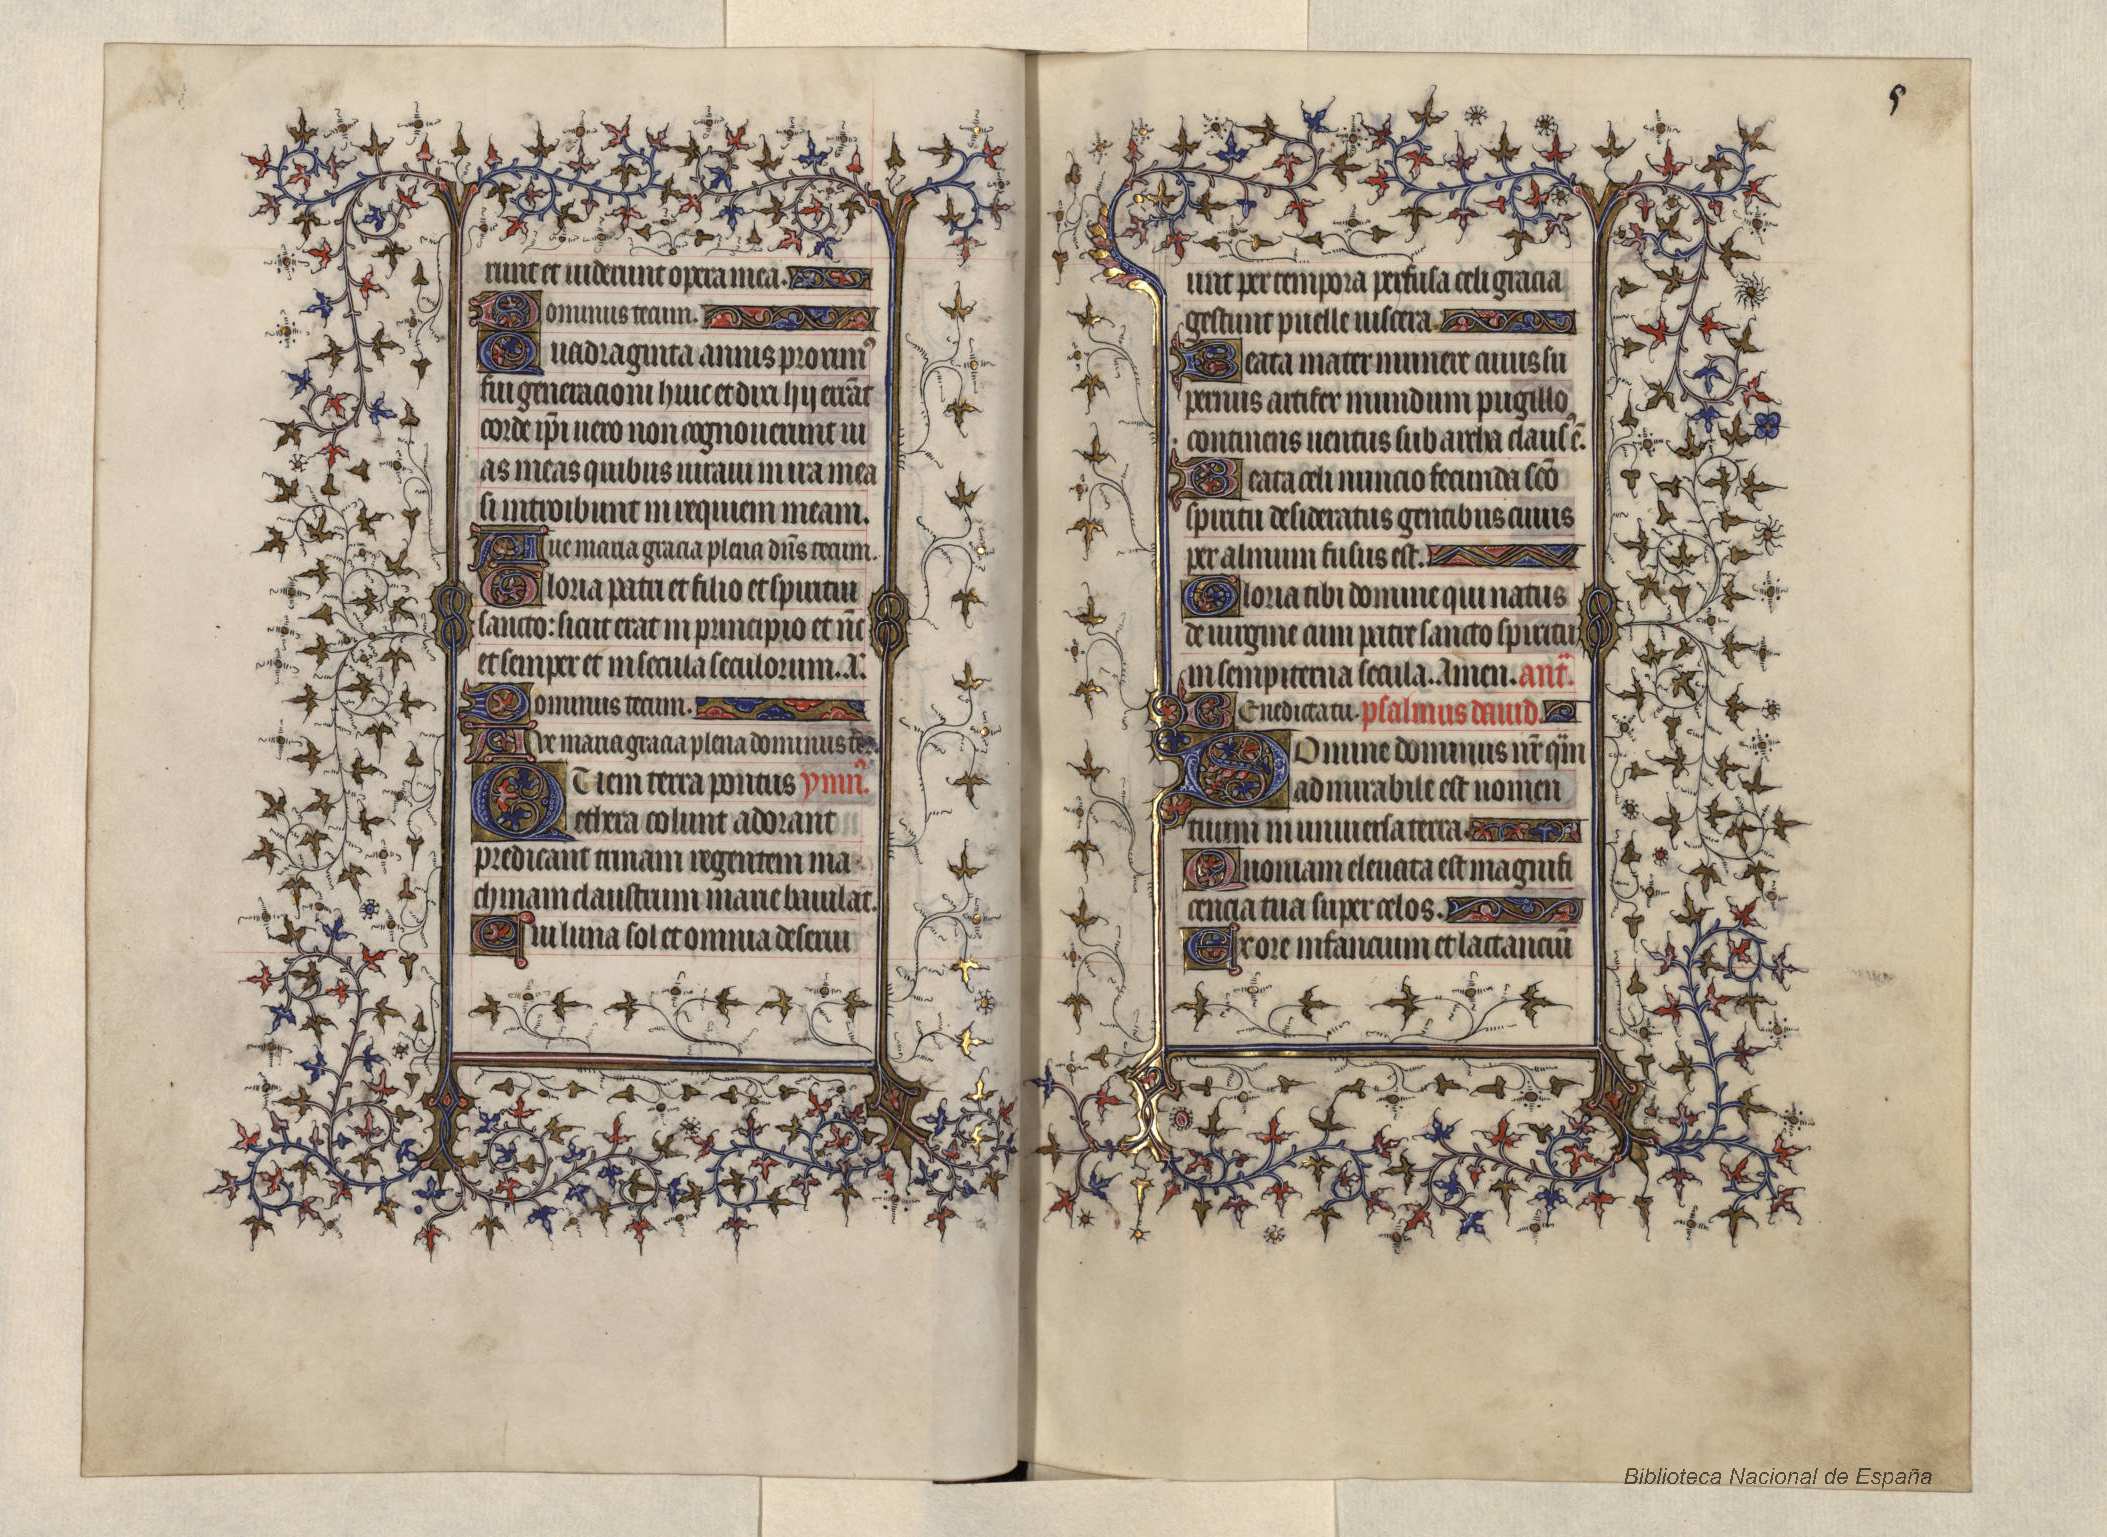 runt et uiderunt opera mea.
Dominus tecum.
Quadraginta annis proximꝰ
fui generacioni huic et dixi hij errāt
corde ip̄i uero non cognouerunt ui
as meas quibus iuraui in ira mea
si introibunt in requiem meam.
Aue maria gracia plena dn̄s tecum.
Gloria patri et filio et spiritui
sancto: sicut erat in principio et nc̄
et semper et in secula seculorum. A.
Dominus tecum.
Aue maria gracia plena dominus
Quem terra pontus ymnꝰ.
ethera colunt adorant
predicant trinam regentem ma
chinam claustrum marie baiulat.
Cui luna sol et omnia deserui
5
unt per tempora perfusa celi gracia
gestant puelle uiscera.
Beata mater munere cuius su
pernus artifex mundum pugillo
continens uentris sub archa clausꝰ ē.
Beata celi nuncio fecunda sc̄o
spiritu desideratus gentibus cuius
per aluum fusus est.
Gloria tibi domine qui natus
de uirgine cum patre sancto spiritu
in sempiterna secula. Amen. ant̄.
Benedicta tu. psalmus dauid.
Domine dominus nr̄ qm̄
admirabile est nomen
tuum in uniuersa terra.
Quoniam eleuata est magnifi
cencia tua super celos.
Ex ore infancium et lactanciū
Biblioteca Nacional de España